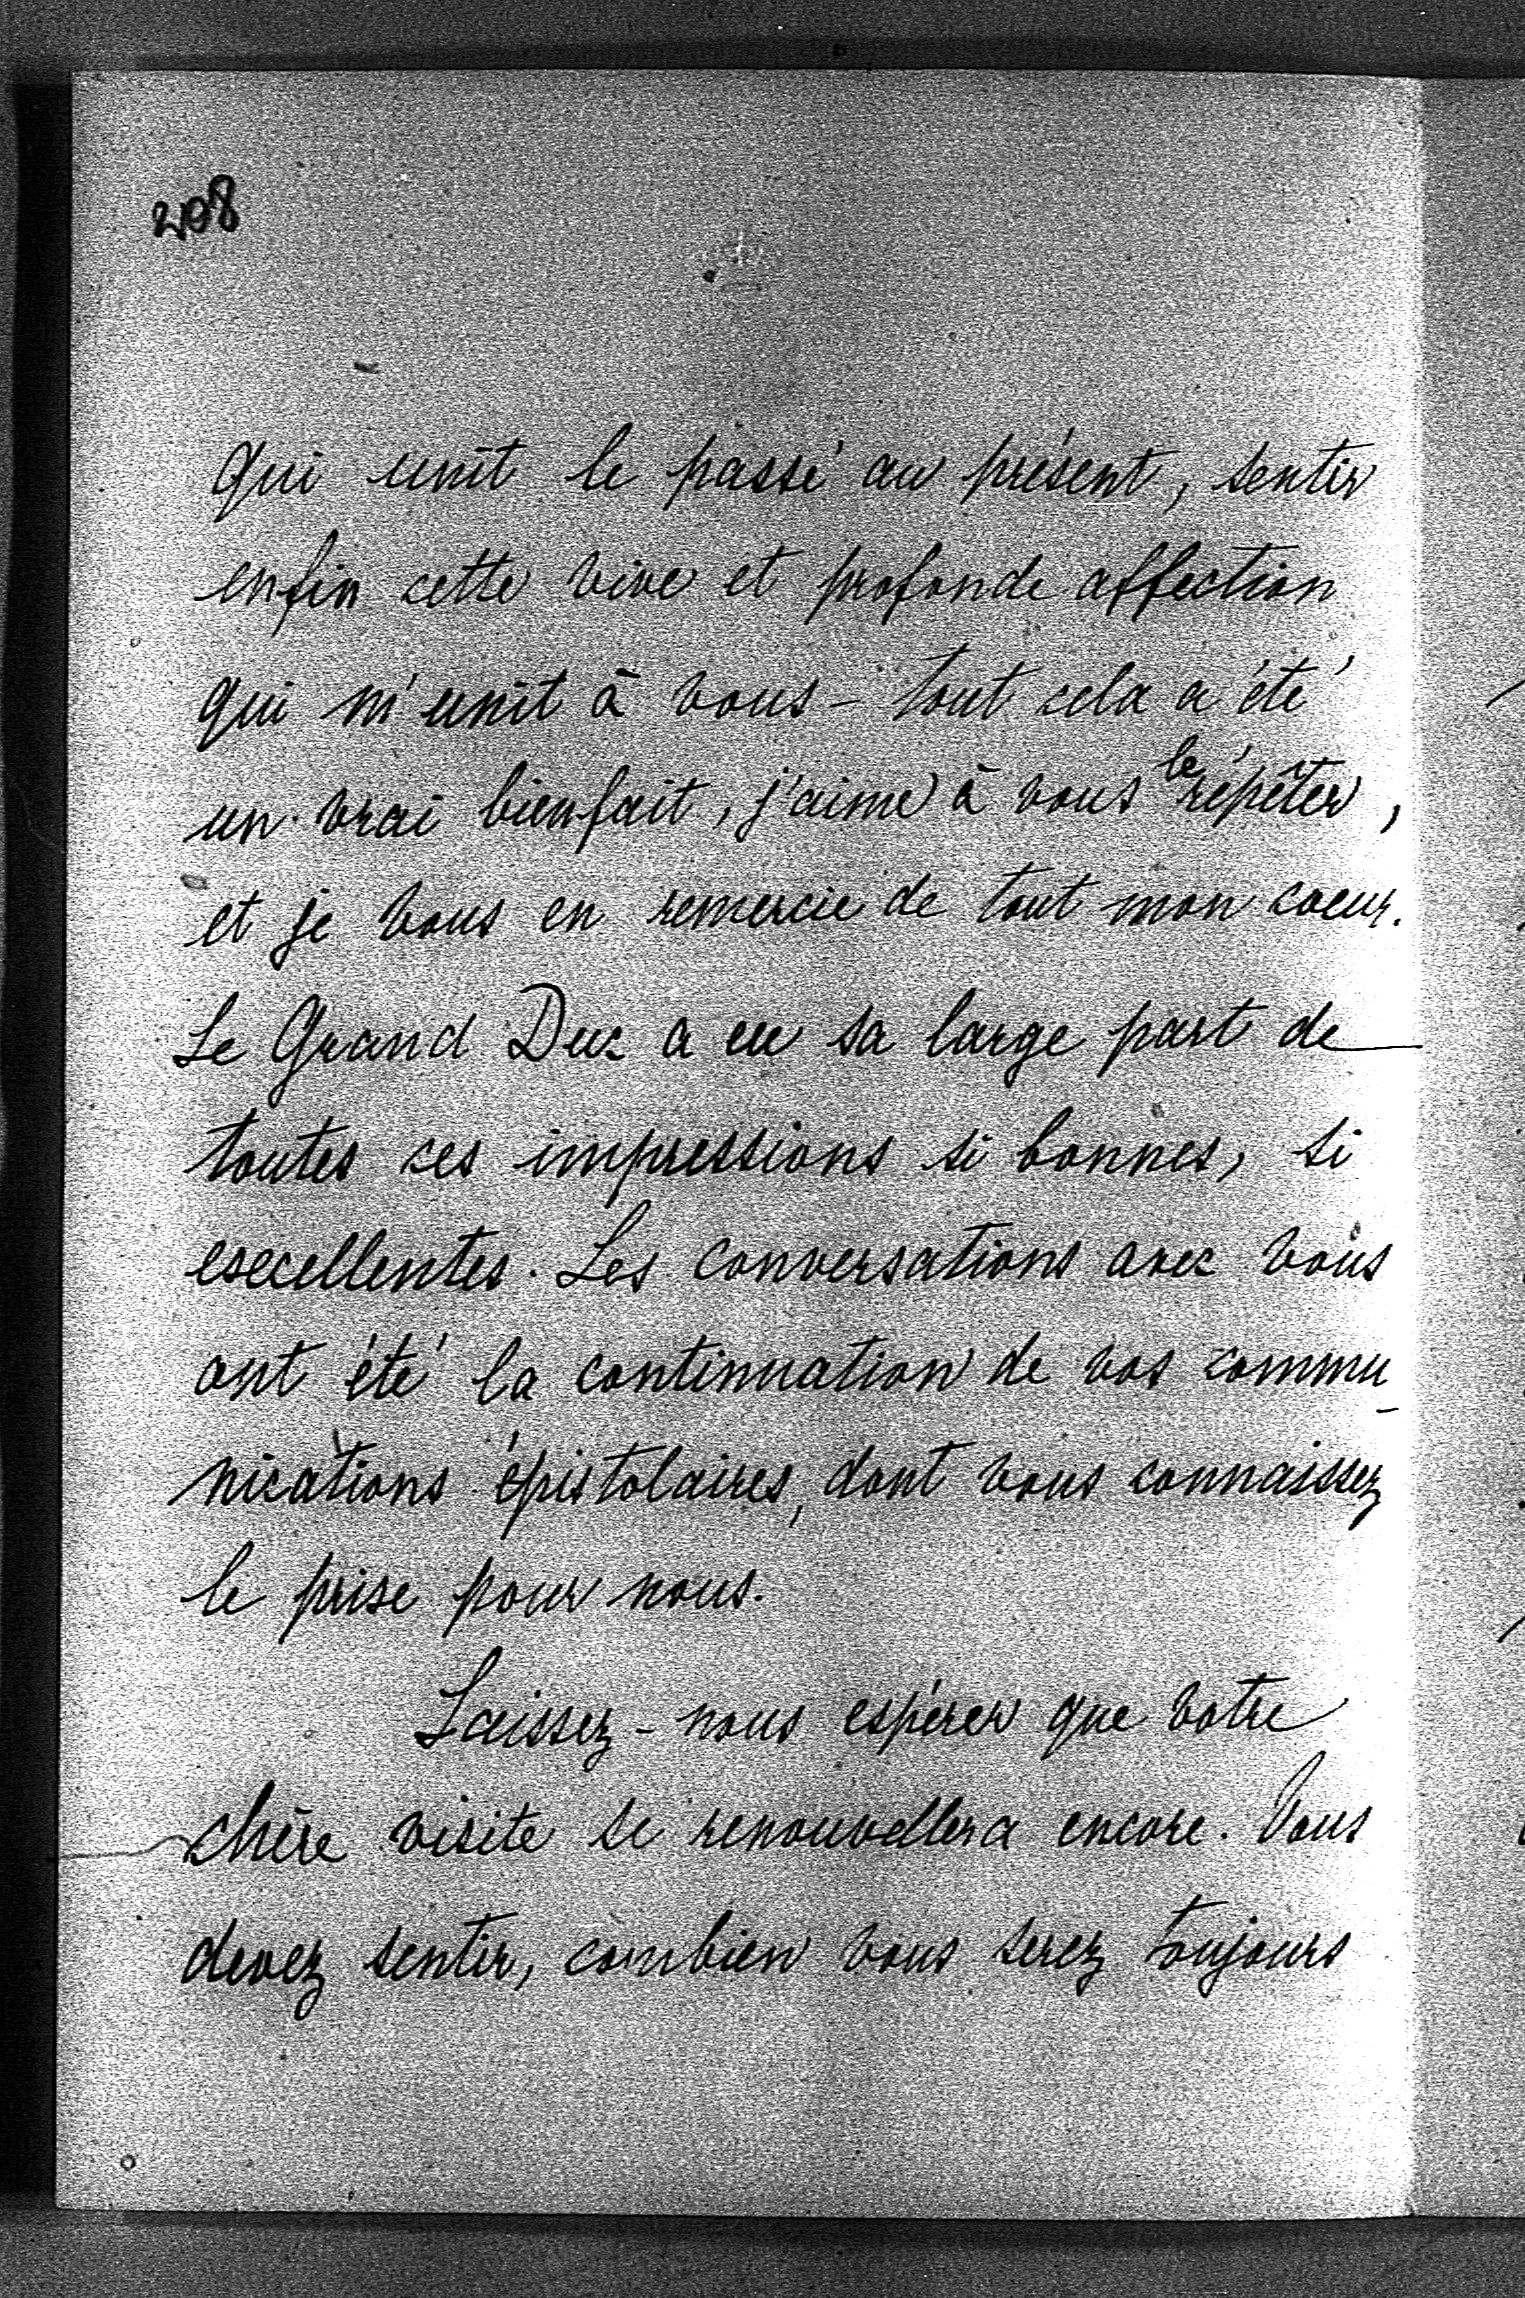 208
qui unit le passé au présent, sentir
enfin cette vive et profonde affection
qui m'unit à vous – tout cela a été
un vrai bienfait, j'aime à vous le répéter,
et je vous en remercie de tout mon coeur.
Le Grand Duc a eu sa large part de
toutes ces impressions si bonnes, si
excellentes. Les conversations avec vous
ont été la continuation de vos commu-
nications épistolaires, dont vous connaissez
le prise pour nous.
Laissez-nous espérer que votre
chère visite se renouvellera encore. Vous
devez sentir, combien vous serez toujours